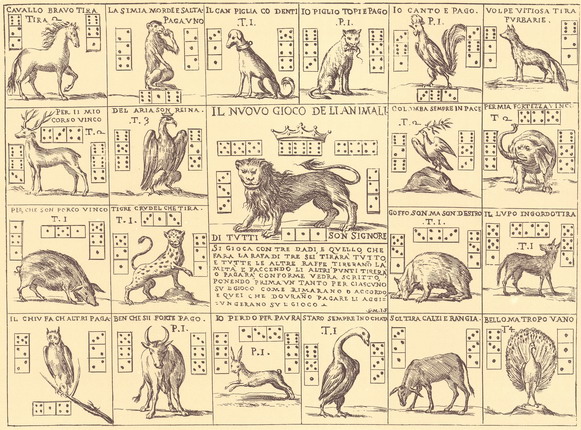 CAVALLO BRAVO TIRA
TIRA 2
LA SIMIA MORDE E SALTA
PAGA UNO
IL CAN PIGLIA CO DENTI
T.1.
IO PIGLIO TOPI E PAGO
.P.1.
IO CANTO E PAGO.
P.1.
VOLPE VITIOSA TIRA
FURBARIE.
PER IL MIO
CORSO VINCO
T.2
DEL ARIA SON REINA.
T.3
IL NUOVO GIOCO DE LI ANIMALI
COLOMBA SEMPRE IN PACE
T.2
PER MIA FORTEZZA VINCO
T 2
PERCHE SON PORCO VINCO
T.1
TIGRE CRUDEL CHE TIRA.
T.1.
DI TUTTI
SON SIGNORE
SI GIOCA CON TRE DADI E QUELLO CHE
FARA LA RAFA DI TRE SEI TIRARA TUTTO
E TUTTE LE ALTRE RAFFE TIRERANO LA
MITA E FACCENDO LI ALTRI PUNTI TIRERA
O PAGARA CONFORME VEDRA SCRITTO
PONENDO PRIMA UN TANTO PER CIASCUNO
SU L GIOCO COME RIMARANO D ACCORDO
E QUEI CHE DOVRANO PAGARE LI AGGIU
UNGERANO SU L GIOCO
GOFFO SON MA SON DESTRO
T.1
IL LUPO INGORDO TIRA
T.1
IL CHIU FA CH ALTRI PAGA
BEN CHE SII FORTE PAGO.
P.1.
IO PERDO PER PAURA
P.1.
STARO SEMPRE IN OCHIO
T.1
SOL TIRA CALZI E RANGIA.
BELLO MA TROPO VANO
T4